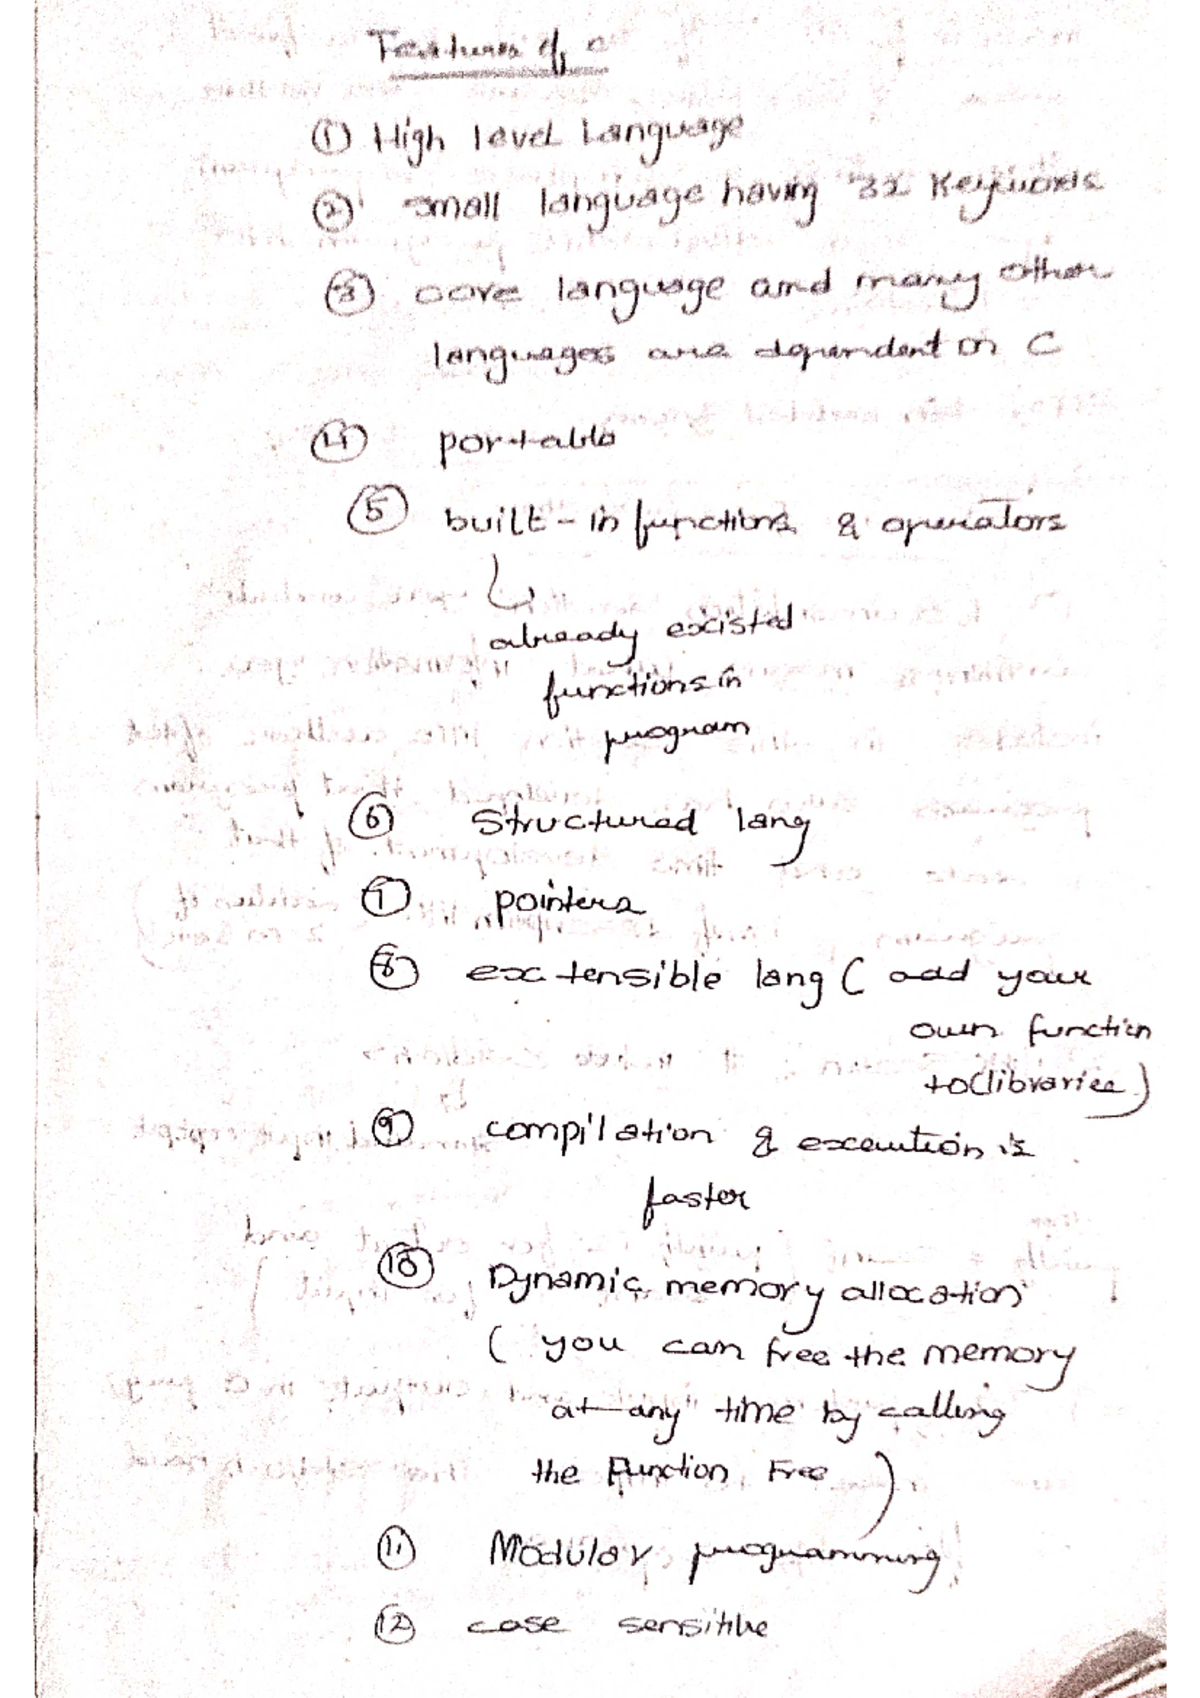 Features of c
① High level Language
② small language having 32 Keywords
③ core language and many other
languages are dependent on C
④ portable
⑤ built-in functions & operators
already existed
functions in
program
⑥ Structured lang
⑦ pointers
⑧ extensible lang ( add your
own function
to(libraries)
⑨ compilation & execution is
faster
⑩ Dynamic memory allocation
( you can free the memory
at any time by calling
the Function Free )
⑪ Modular programming
⑫ case sensitive